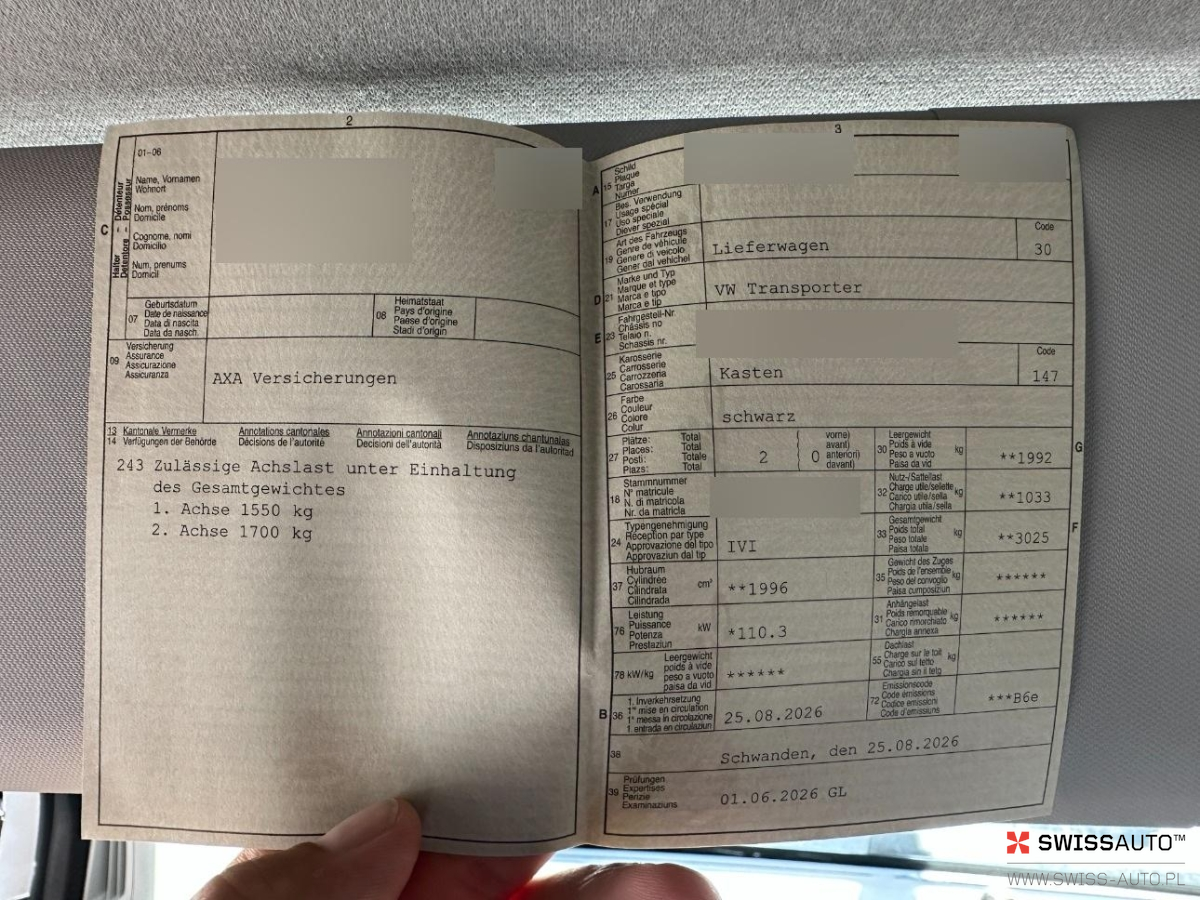 2
01-06
Name, Vornamen
Wohnort
Nom, prénoms
Domicile
Cognome, nomi
Domicilio
Num, prenums
Domicil
C
Halter Détenteur
Detentore Possessur
07
Geburtsdatum
Date de naissance
Data di nascita
Data da nasch.
08
Heimatstaat
Pays d'origine
Paese d'origine
Stadi d'origin
09
Versicherung
Assurance
Assicurazione
Assicuranza
AXA Versicherungen
13 Kantonale Vermerke Annotations cantonales Annotazioni cantonali Annotaziuns chantunalas
14 Verfügungen der Behörde Décisions de l'autorité Decisioni dell'autorità Disposiziuns da l'autoritad
243 Zulässige Achslast unter Einhaltung
des Gesamtgewichtes
1. Achse 1550 kg
2. Achse 1700 kg
3
A
15
Schild
Plaque
Targa
Numer
17
Bes. Verwendung
Usage spécial
Uso speciale
Diever spezial
19
Art des Fahrzeugs
Genre de véhicule
Genere di veicolo
Gener dal vehichel
Lieferwagen
Code
30
D
21
Marke und Typ
Marque et type
Marca e tipo
Marca e tip
VW Transporter
E
23
Fahrgestell-Nr.
Châssis no
Telaio n.
Schassis nr.
25
Karosserie
Carrosserie
Carrozzeria
Carossaria
Kasten
Code
147
26
Farbe
Couleur
Colore
Colur
schwarz
27
Plätze: Total
Places: Total
Posti: Totale
Plazs: Total
2
0
vorne)
avant)
anteriori)
davant)
30
Leergewicht
Poids à vide
Peso a vuoto
Paisa da vid
kg
**1992
G
18
Stammnummer
N° matricule
N. di matricola
Nr. da matricla
32
Nutz-/Sattellast
Charge utile/sellette
Carico utile/sella
Chargia utila/sella
kg
**1033
24
Typengenehmigung
Réception par type
Approvazione del tipo
Approvaziun dal tip
IVI
33
Gesamtgewicht
Poids total
Peso totale
Paisa totala
kg
**3025
F
37
Hubraum
Cylindrée
Cilindrata
Cilindrada
cm³
**1996
35
Gewicht des Zuges
Poids de l'ensemble
Peso del convoglio
Paisa cumposiziun
kg
******
76
Leistung
Puissance
Potenza
Prestaziun
kW
*110.3
31
Anhängelast
Poids remorquable
Carico rimorchiato
Chargia annexa
kg
******
78 kW/kg
Leergewicht
poids à vide
peso a vuoto
paisa da vid
******
55
Dachlast
Charge sur le toit
Carico sul tetto
Chargia sin il tetg
kg
B
36
1. Inverkehrsetzung
1re mise en circulation
1a messa in circolazione
1. entrada en circulaziun
25.08.2026
72
Emissionscode
Code émissions
Codice emissioni
Code d'emissiuns
***B6e
38
Schwanden, den 25.08.2026
39
Prüfungen
Expertises
Perizie
Examinaziuns
01.06.2026 GL
SWISSAUTO™
WWW.SWISS-AUTO.PL